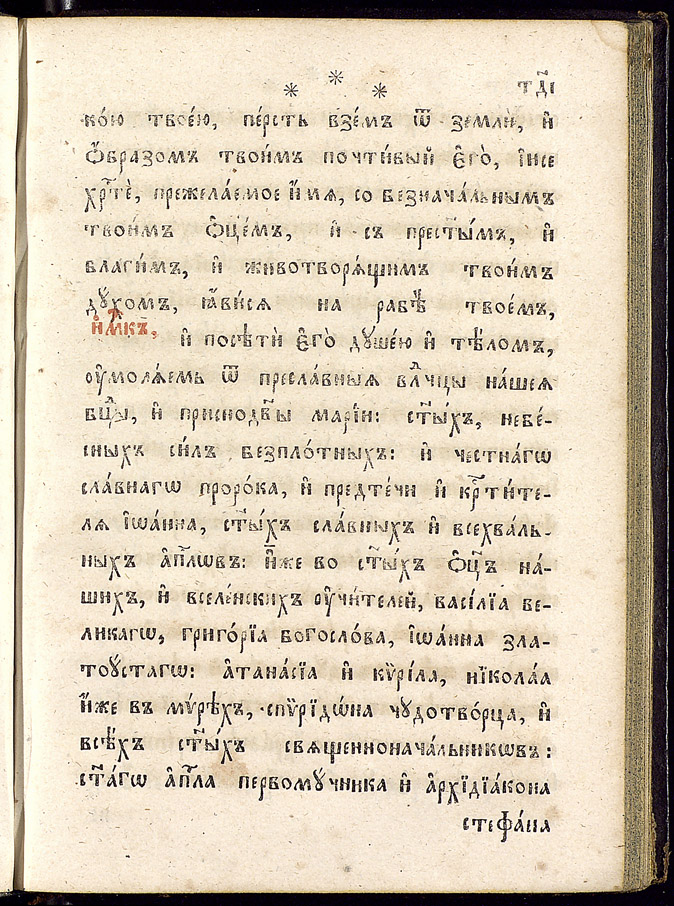 * * * тд҃і
ко́ю твоє́ю, пе́рсть взе́мъ ѿ землѝ, и҆
ѻ҆́бразомъ твои́мъ почти́вый є҆го̀, і҆исе
хрⷭ҇тѐ, прежела́емое и҆́мя, со безнача́льнымъ
твои́мъ ѻ҆ц҃е́мъ, и҆ съ прест҃ы́мъ, и҆
благи́мъ, и҆ животворѧ́щимъ твои́мъ
дꙋ́хомъ, ꙗ҆ви́сѧ на рабѣ̀ твое́мъ,
и҆м҃къ,
и҆ посѣтѝ є҆го̀ дꙋше́ю и҆ тѣ́ломъ,
оу҆молѧ́емь ѿ пресла́вныѧ влⷣчцы на́шеѧ
бц҃ы, и҆ приснодв҃ы марі́и: ст҃ы́хъ, небе́-
сныхъ си́лъ безпло́тныхъ: и҆ честна́гѡ
сла́внагѡ проро́ка, и҆ предте́чи и҆ крⷭ҇ти́те-
лѧ і҆ѡа́нна, ст҃ы́хъ сла́вныхъ и҆ всехва́ль-
ныхъ а҆пⷭ҇лѡвъ: и҆́же во ст҃ы́хъ ѻ҆ц҃ъ на́-
шихъ, и҆ вселе́нскихъ оу҆чи́телей, васі́лїа ве-
ликагѡ, григо́рїа богосло́ва, і҆ѡа́нна зла-
тоꙋ́стагѡ: а҆тана́сїа и҆ кѷрі́ла, нїкола́а
и҆́же въ мѵ́рѣхъ, спѷрїдѡ́на чꙋдотво́рца, и҆
всѣ́хъ ст҃ы́хъ свѧщеннонача́льникѡвъ:
ст҃а́гѡ а҆пⷭ҇ла первомꙋ́чника и҆ а҆рхїдїа́кона
стефа́на